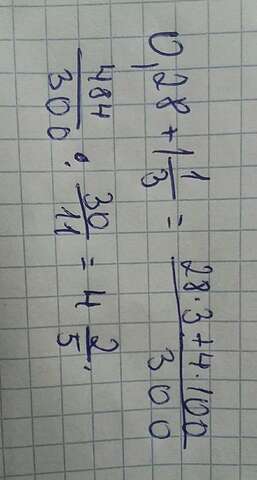 0,28 + 1 1/3 = (28·3+4·100)/300
484/300 : 30/11 = 4 2/5.